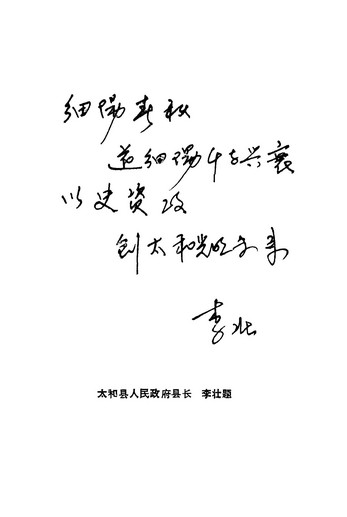 细阳春秋
道细阳千古兴衰
以史资政
创太和光明未来
李壮
太和县人民政府县长 李壮题